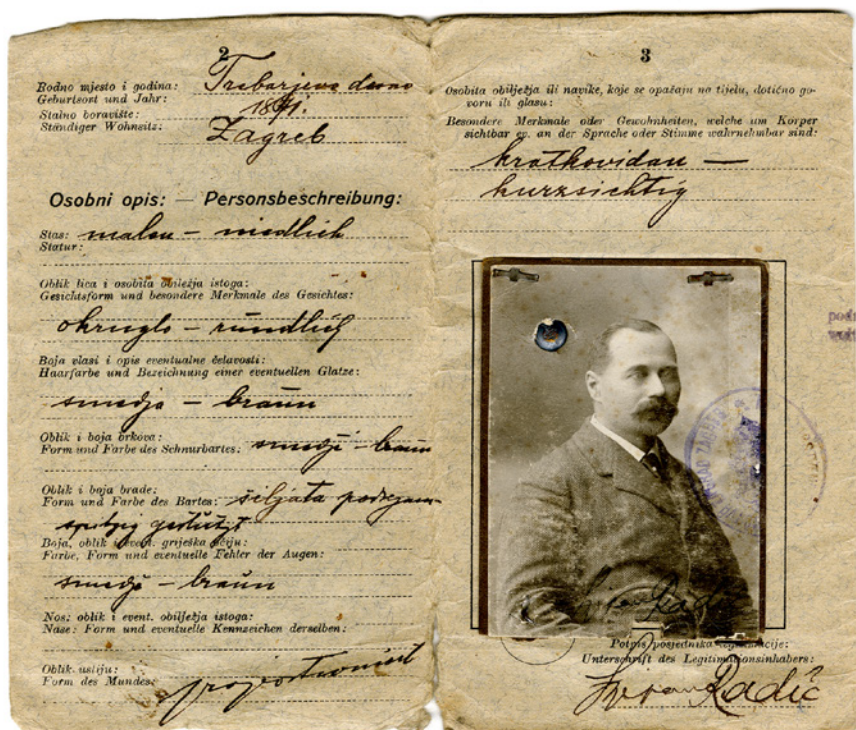 2
Rodno mjesto i godina: Trebarjevo desno
Geburtsort und Jahr: 1871.
Stalno boravište:
Ständiger Wohnsitz: Zagreb
Osobni opis: — Personsbeschreibung:
Stas: malen – niedlich
Statur:
Oblik lica i osobita obilježja istoga:
Gesichtsform und besondere Merkmale des Gesichtes:
okruglo – rundlich
Boja vlasi i opis eventualne ćelavosti:
Haarfarbe und Bezeichnung einer eventuellen Glatze:
smedja – braun
Oblik i boja brkova:
Form und Farbe des Schnurbartes: smedji – braun
Oblik i boja brade:
Form und Farbe des Bartes: šiljata
spitzig gestutzt
Boja, oblik i event. griješka očiju:
Farbe, Form und eventuelle Fehler der Augen:
smedje – braun
Nos: oblik i event. obilježja istoga:
Nase: Form und eventuelle Kennzeichen derselben:
Oblik ustiju:
Form des Mundes: proportioniert
3
Osobita obilježja ili navike, koje se opažaju na tijelu, dotično go-
voru ili glasu:
Besondere Merkmale oder Gewohnheiten, welche am Körper
sichtbar ev. an der Sprache oder Stimme wahrnehmbar sind:
kratkovidan —
kurzsichtig
Potpis posjednika legitimacije:
Unterschrift des Legitimationsinhabers:
Radić